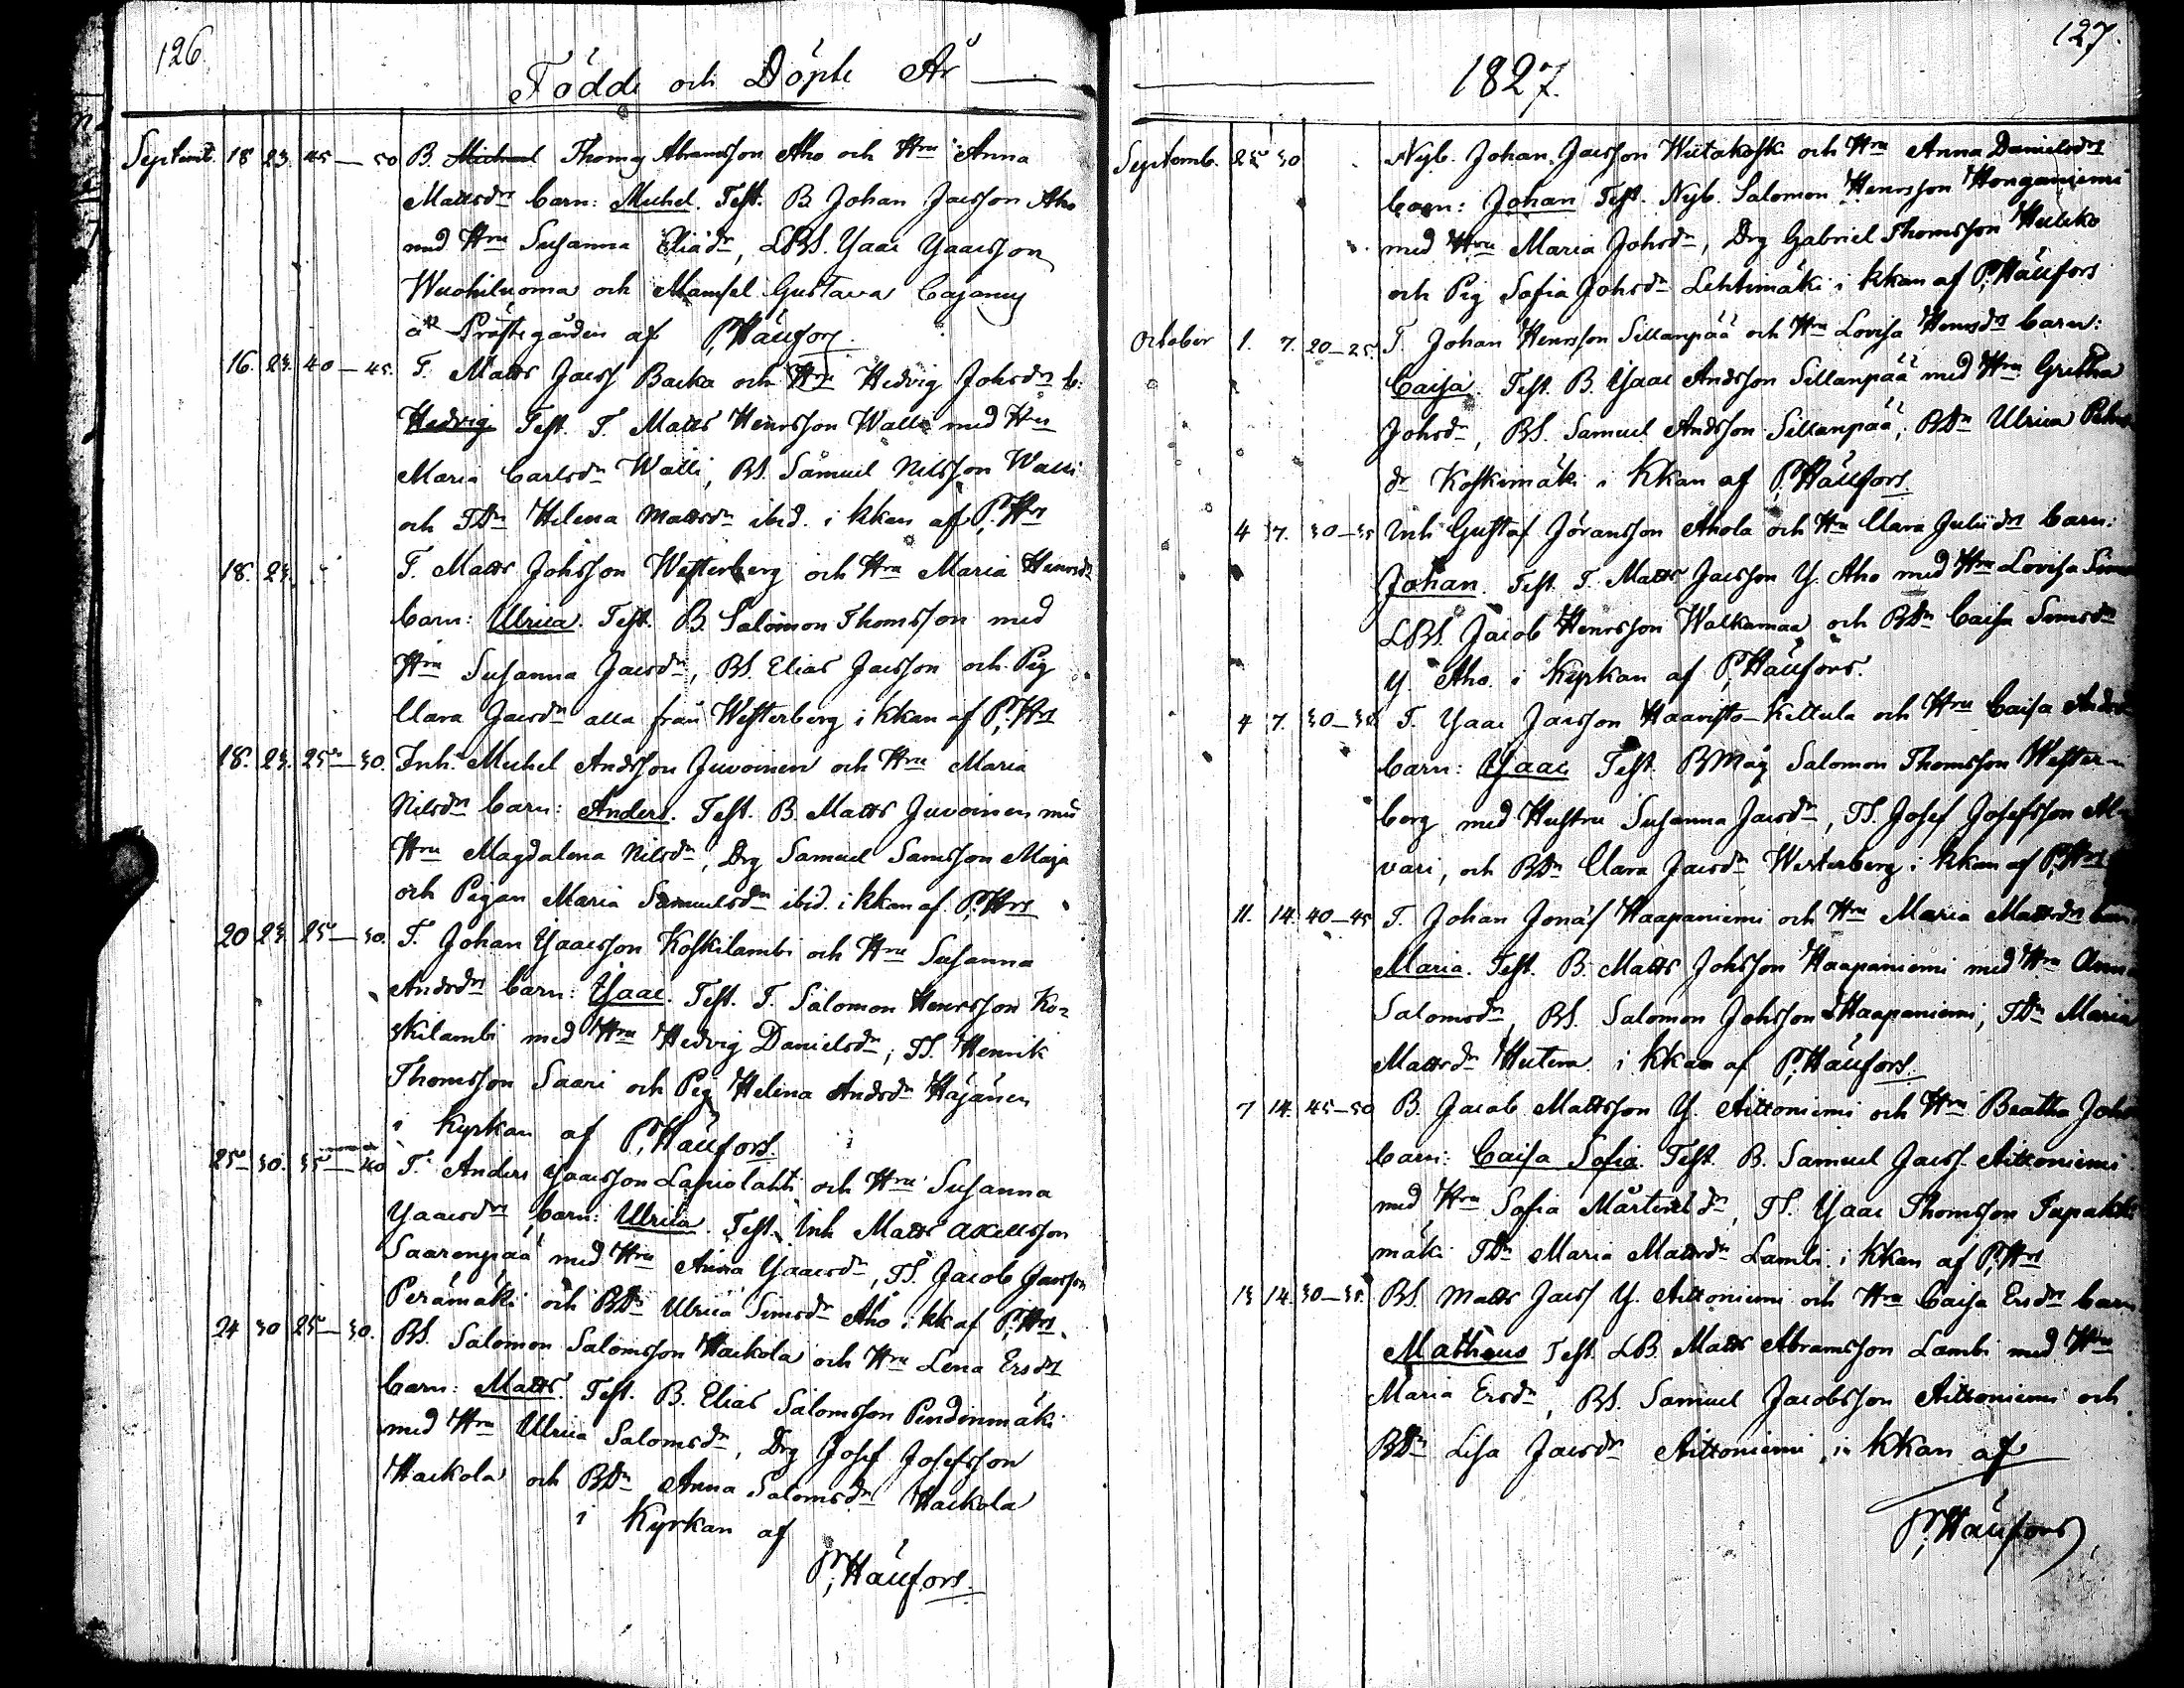 126
Födde och Döpte År
Septemb. 18 23. 45 — 50 B. Michael Thomas Abramsson Aho och Hru Anna
Mattsdrs barn: Michel. Test. B. Johan Jacsson Aho
med Hru Susanna Eliädr, LBS. Ysaac Ysaacsson
Wuohiluoma och Mamsel Gustava Cajanus
Prästegården af P. Häufors.
16. 23. 40 — 45. T. Matts Jacss Backa och Hru Hedvig Johsdrs b:
Hedvig Test. T. Matts Henrsson Walli med Hru
Maria Carlsdr Walli, BS. Samuel Nilsson Walli
och TDr Helena Mattsdr ibid. i kkan af P. Hrs
18. 23. T. Matts Johsson Westerberg och Hru Maria Henrsdrs
barn: Ulrica. Test. B. Salomon Thomsson med
Hru Susanna Jacsdr, BS. Elias Jacsson och Pig
Clara Jacsdr alla från Westerberg i kkan af P. Hrs
18. 23. 25 — 30. Inh. Michel Andsson Juvoinen och Hru Maria
Nilsdrs barn: Anders. Test. B. Matts Juvoinen med
Hru Magdalena Nilsdr, Drg Samuel Samsson Maja
och Pigan Maria Samuelsdr ibid. i kkan af P. Hrs
20 23 25 — 30. T. Johan Ysaacsson Koskilambi och Hru Susanna
Andsdrs barn: Ysaac. Test. T. Salomon Henrsson Ko-
skilambi med Hru Hedvig Danielsdr; TS. Henrik
Thomsson Saari och Pig Helena Andsdr Hajanen
i Kyrkan af P. Häufors.
25 30. 35 — 40 T. Anders Ysaacsson Lapiolahti och Hru Susanna
Ysaacsdrs barn: Ulrica. Test. Inh Matts Axellsson
Saarenpää med Hru Anna Ysaacsdr, TS. Jacob Jacsson
Perämäki och BDr Ulrica Simsdr Aho i kk af P. Hrs.
24 30 25 — 30. BS. Salomon Salomsson Hackola och Hru Lena Ersdrs
barn: Matts. Test. B. Elias Salomsson Pendinmäki
med Hru Ulrica Salomsdr, Drg Josef Josefsson
Hackola och BDr Anna Salomsdr Hackola
i Kyrkan af
P. Häufors.
127.
1827.
Septemb. 25 30 Nyb. Johan Jacsson Wiitakoski och Hru Anna Danielsdrs
barn: Johan Test. Nyb. Salomon Henrsson Honganiemi
med Hru Maria Johsdr, Drg Gabriel Thomsson
och Pig Sofia Johsdr Lehtimäki i kkan af P. Häufors
October 1. 7. 20 — 25. T. Johan Henrsson Sillanpää och Hru Lovisa Henrsdrs barn:
Caisa. Test. B. Ysaac Andsson Sillanpää med Hru Gretha
Johsdr, BS. Samuel Andsson Sillanpää, BDr Ulrica
dr Koskimäki i Kkan af P. Häufors
4 7. 30 — 35 Inh Gustaf Jöransson Ahola och Hru Clara Juliidrs barn:
Johan. Test. T. Matts Jacsson Y. Aho med Hru Lovisa
LBS. Jacob Henrsson Walkamaa och BDr Caisa Simsdr
Y. Aho i Kyrkan af P. Häufors.
4 7. 30 — 35. T. Ysaac Jacsson Haavisto-Kettula och Hru Caisa
barn: Ysaac Test. BMåg Salomon Thomsson Wester-
berg med Hustru Susanna Jacsdr, TS. Josef Josefsson Al-
vari, och BDr Clara Jacsdr Westerberg i kkan af P. Hrs
11. 14. 40 — 45 T. Johan Jonäs Haapaniemi och Hru Maria Mattsdrs barn
Maria. Test. B. Matts Johsson Haapaniemi med Hru Anna
Salomsdr, BS. Salomon Johsson Haapaniemi, TDr Maria
Mattsdr i kkan af P. Häufors.
7 14. 45 — 50 B. Jacob Mattsson Y. Aittoniemi och Hru Beatha
barn: Caisa Sofia. Test. B. Samuel Jacss. Aittoniemi
med Hru Sofia Mårtensdr, TS. Ysaac Thomsson
mäki TDr Maria Mattsdr Lambi i kkan af P. Hrs
13 14. 30 — 35. BS. Matts Jacss Y. Aittoniemi och Hru Caisa Ersdrs barn
Matheus Test. LB. Matts Abramsson Lambi med Hru
Maria Ersdr, BS. Samuel Jacobsson Aittoniemi och
BDr Lisa Jacsdr Aittoniemi, i kkan af
P. Häufors